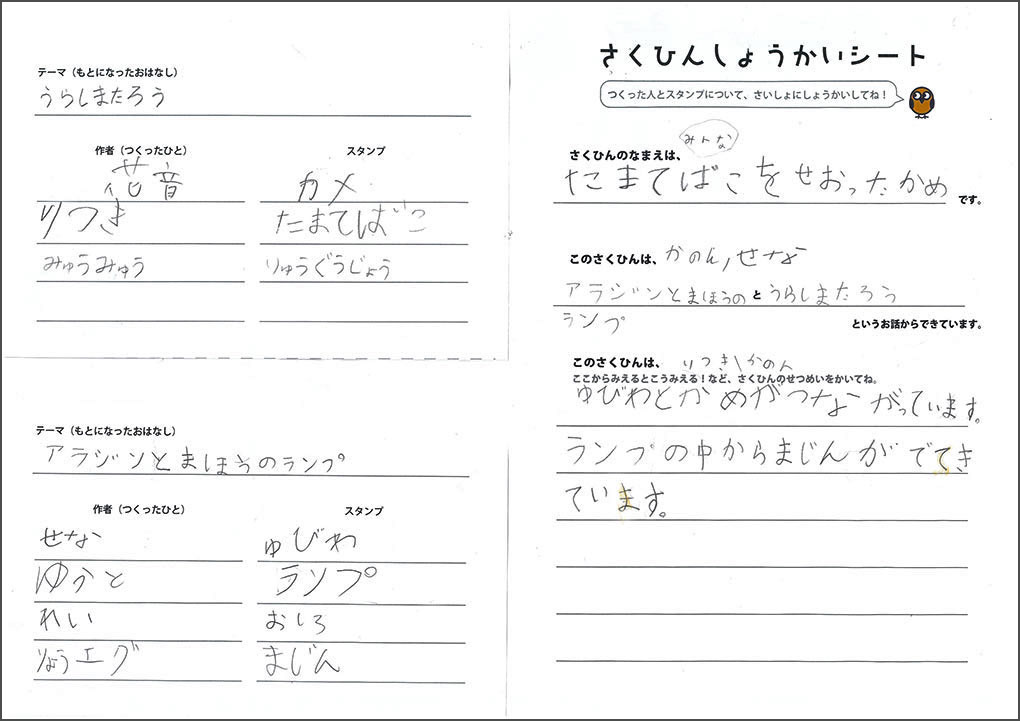 テーマ（もとになったおはなし）
うらしまたろう
作者（つくったひと） スタンプ
花音 カメ
りつき たまてばこ
みゅうみゅう りゅうぐうじょう
テーマ（もとになったおはなし）
アラジンとまほうのランプ
作者（つくったひと） スタンプ
せな ゆびわ
ゆかと ランプ
れい おしろ
りょうエグ まじん
さくひんしょうかいシート
つくった人とスタンプについて、さいしょにしょうかいしてね！
みんな
さくひんのなまえは、
たまてばこをせおったかめ です。
このさくひんは、かのん,せな
アラジンとまほうの と うらしまたろう
ランプ というお話からできています。
このさくひんは、 りつき かのん
ここからみえるとこうみえる！など、さくひんのせつめいをかいてね。
ゆびわとかめがつながっています。
ランプの中からまじんがでてき
ています。